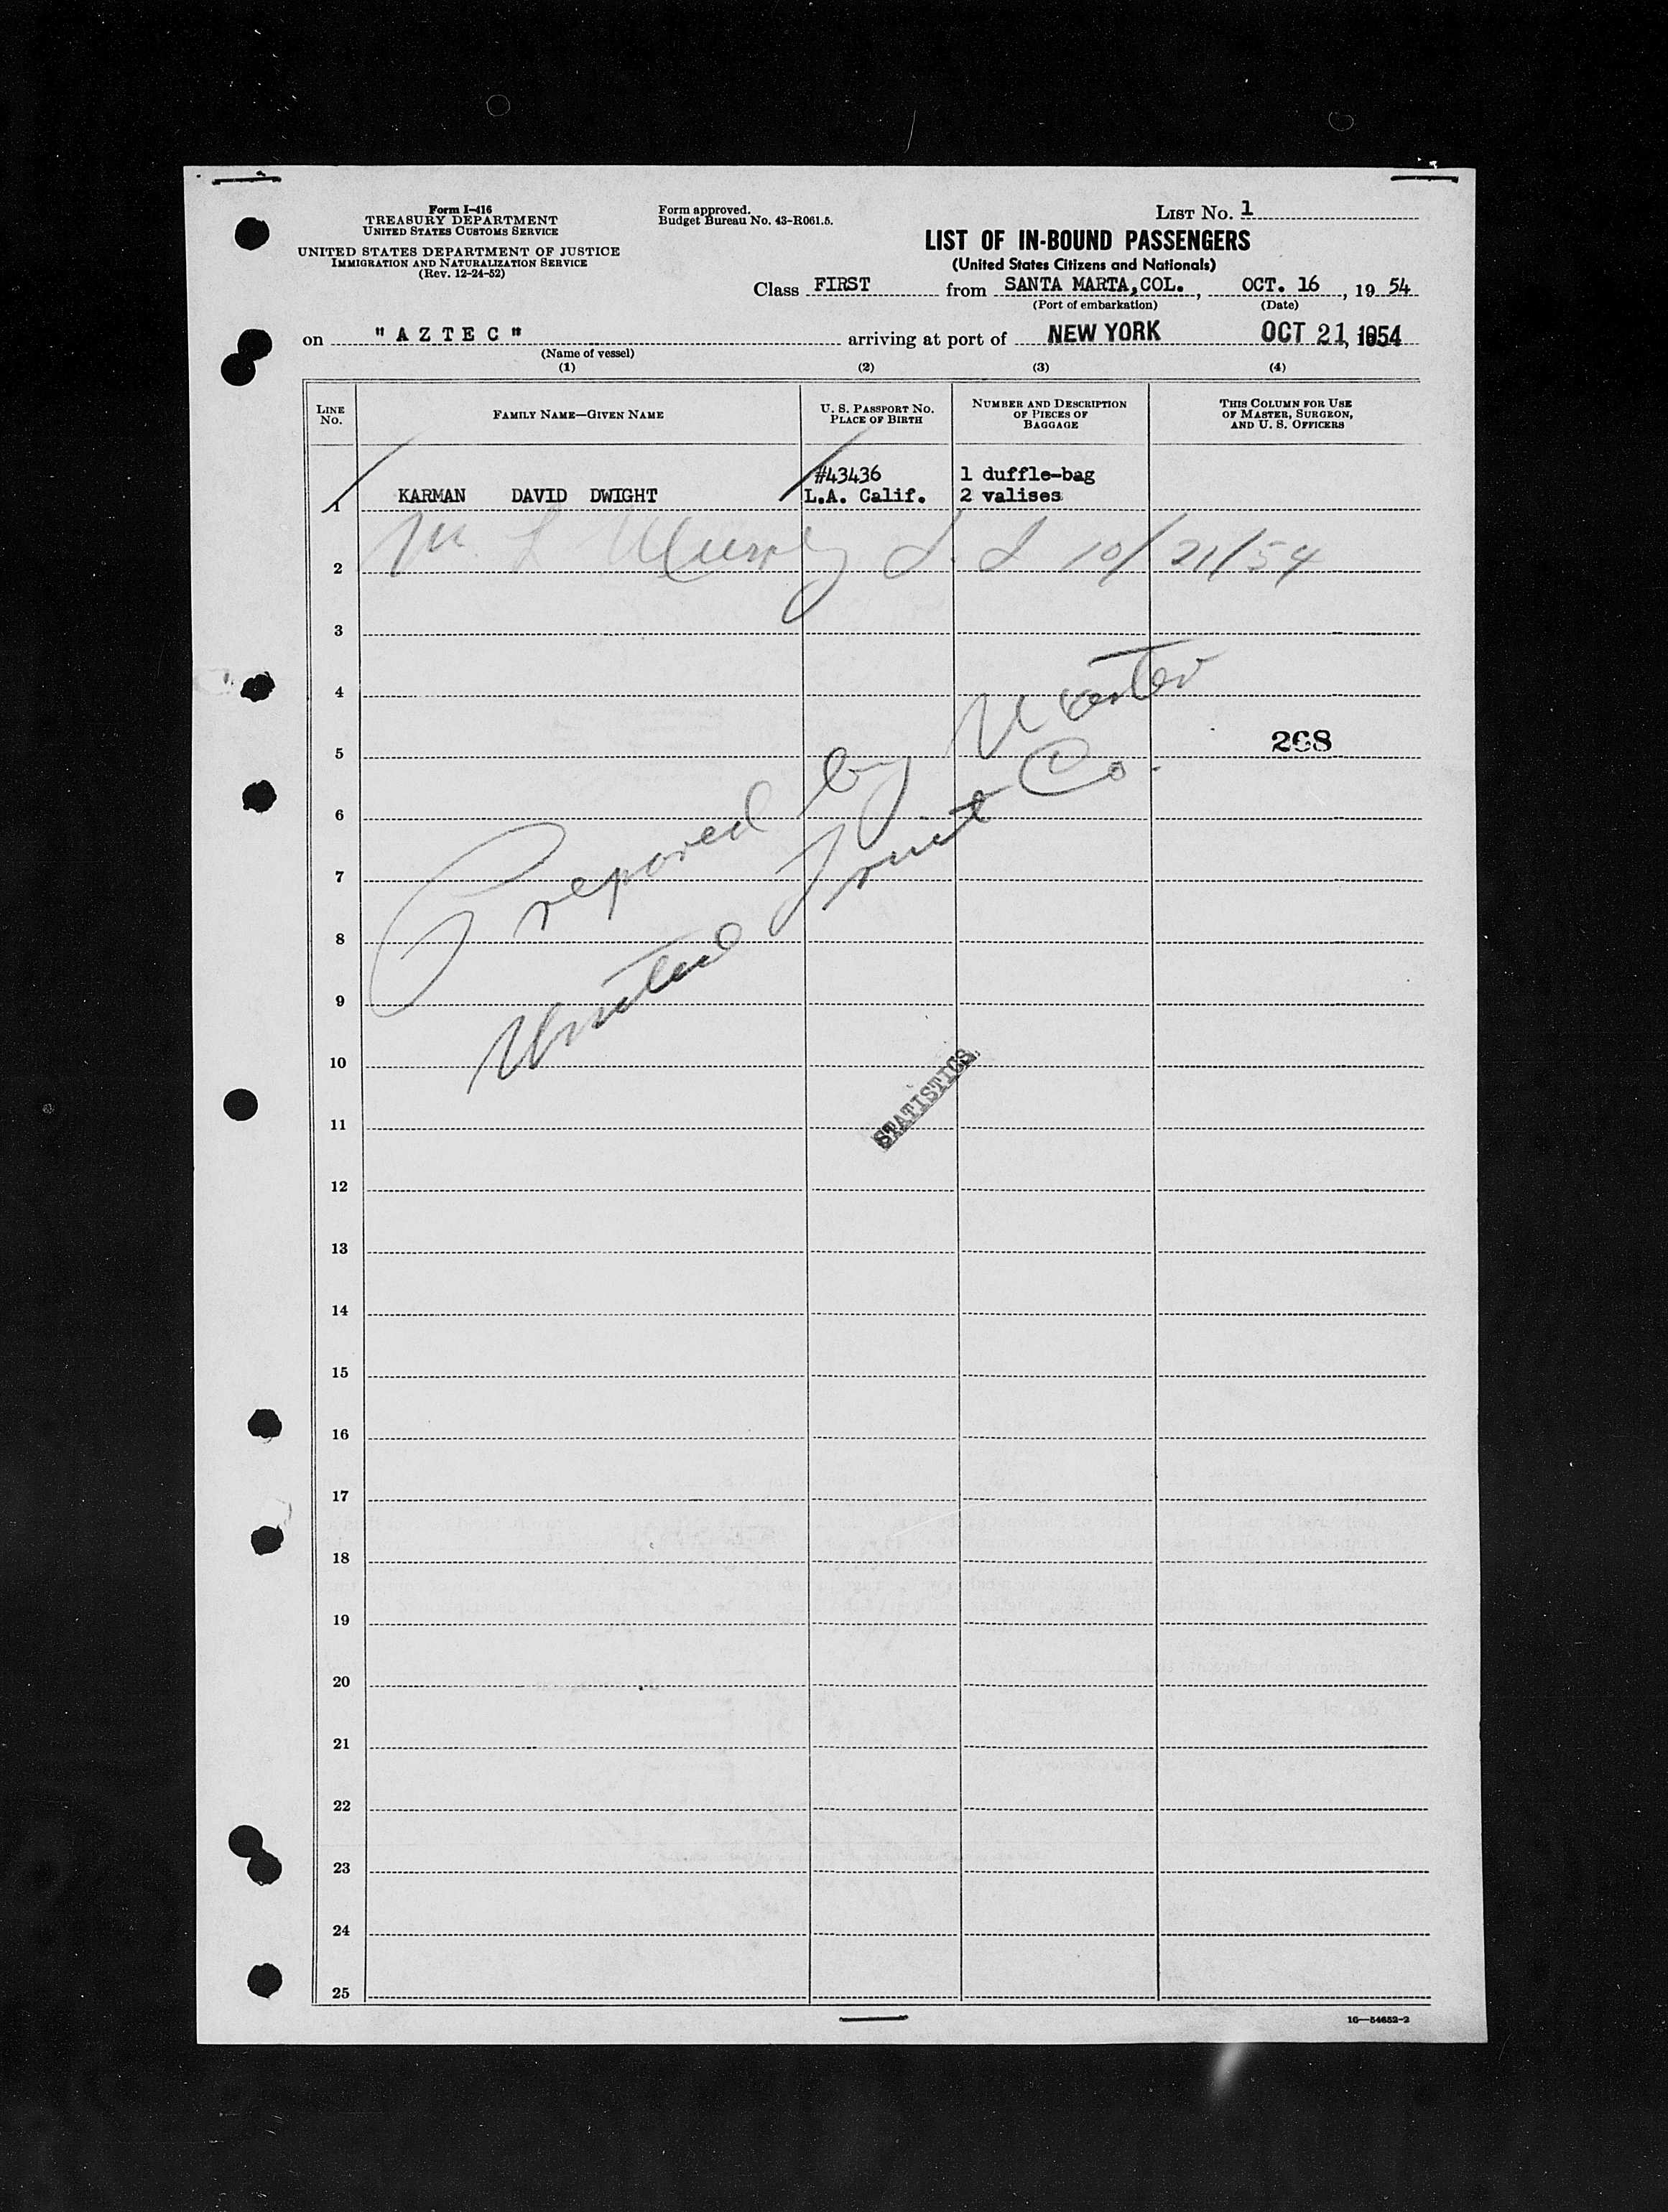 Form I-416
TREASURY DEPARTMENT
UNITED STATES CUSTOMS SERVICE
UNITED STATES DEPARTMENT OF JUSTICE
IMMIGRATION AND NATURALIZATION SERVICE
(Rev. 12-24-52)
Form approved.
Budget Bureau No. 43-R061.5.
LIST NO. 1
LIST OF IN-BOUND PASSENGERS
(United States Citizens and Nationals)
Class FIRST from SANTA MARTA, COL., OCT. 16, 19 54
(Port of embarkation) (Date)
on "A Z T E C" arriving at port of NEW YORK OCT 21, 1954
(Name of vessel)
(1) (2) (3) (4)
LINE NO.
FAMILY NAME—GIVEN NAME
U. S. PASSPORT NO. PLACE OF BIRTH
NUMBER AND DESCRIPTION OF PIECES OF BAGGAGE
THIS COLUMN FOR USE OF MASTER, SURGEON, AND U. S. OFFICERS
#43436 1 duffle-bag
1 KARMAN DAVID DWIGHT L.A. Calif. 2 valises
M. L Murphy 10/21/54
2
3
4
Prepared by Master
268
5
United Fruit Co.
6
7
8
9
10
STATISTICS.
11
12
13
14
15
16
17
18
19
20
21
22
23
24
25
16—54652-2